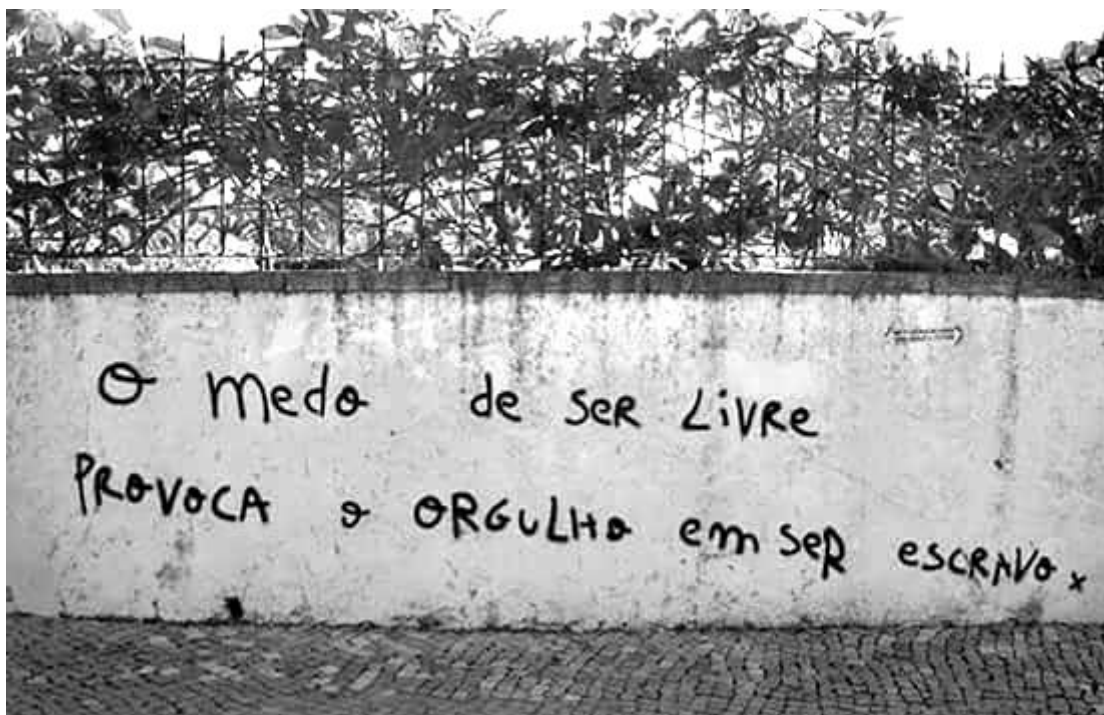 O medo de ser Livre
PROVOCA o ORGULHO em seR escRAVo x